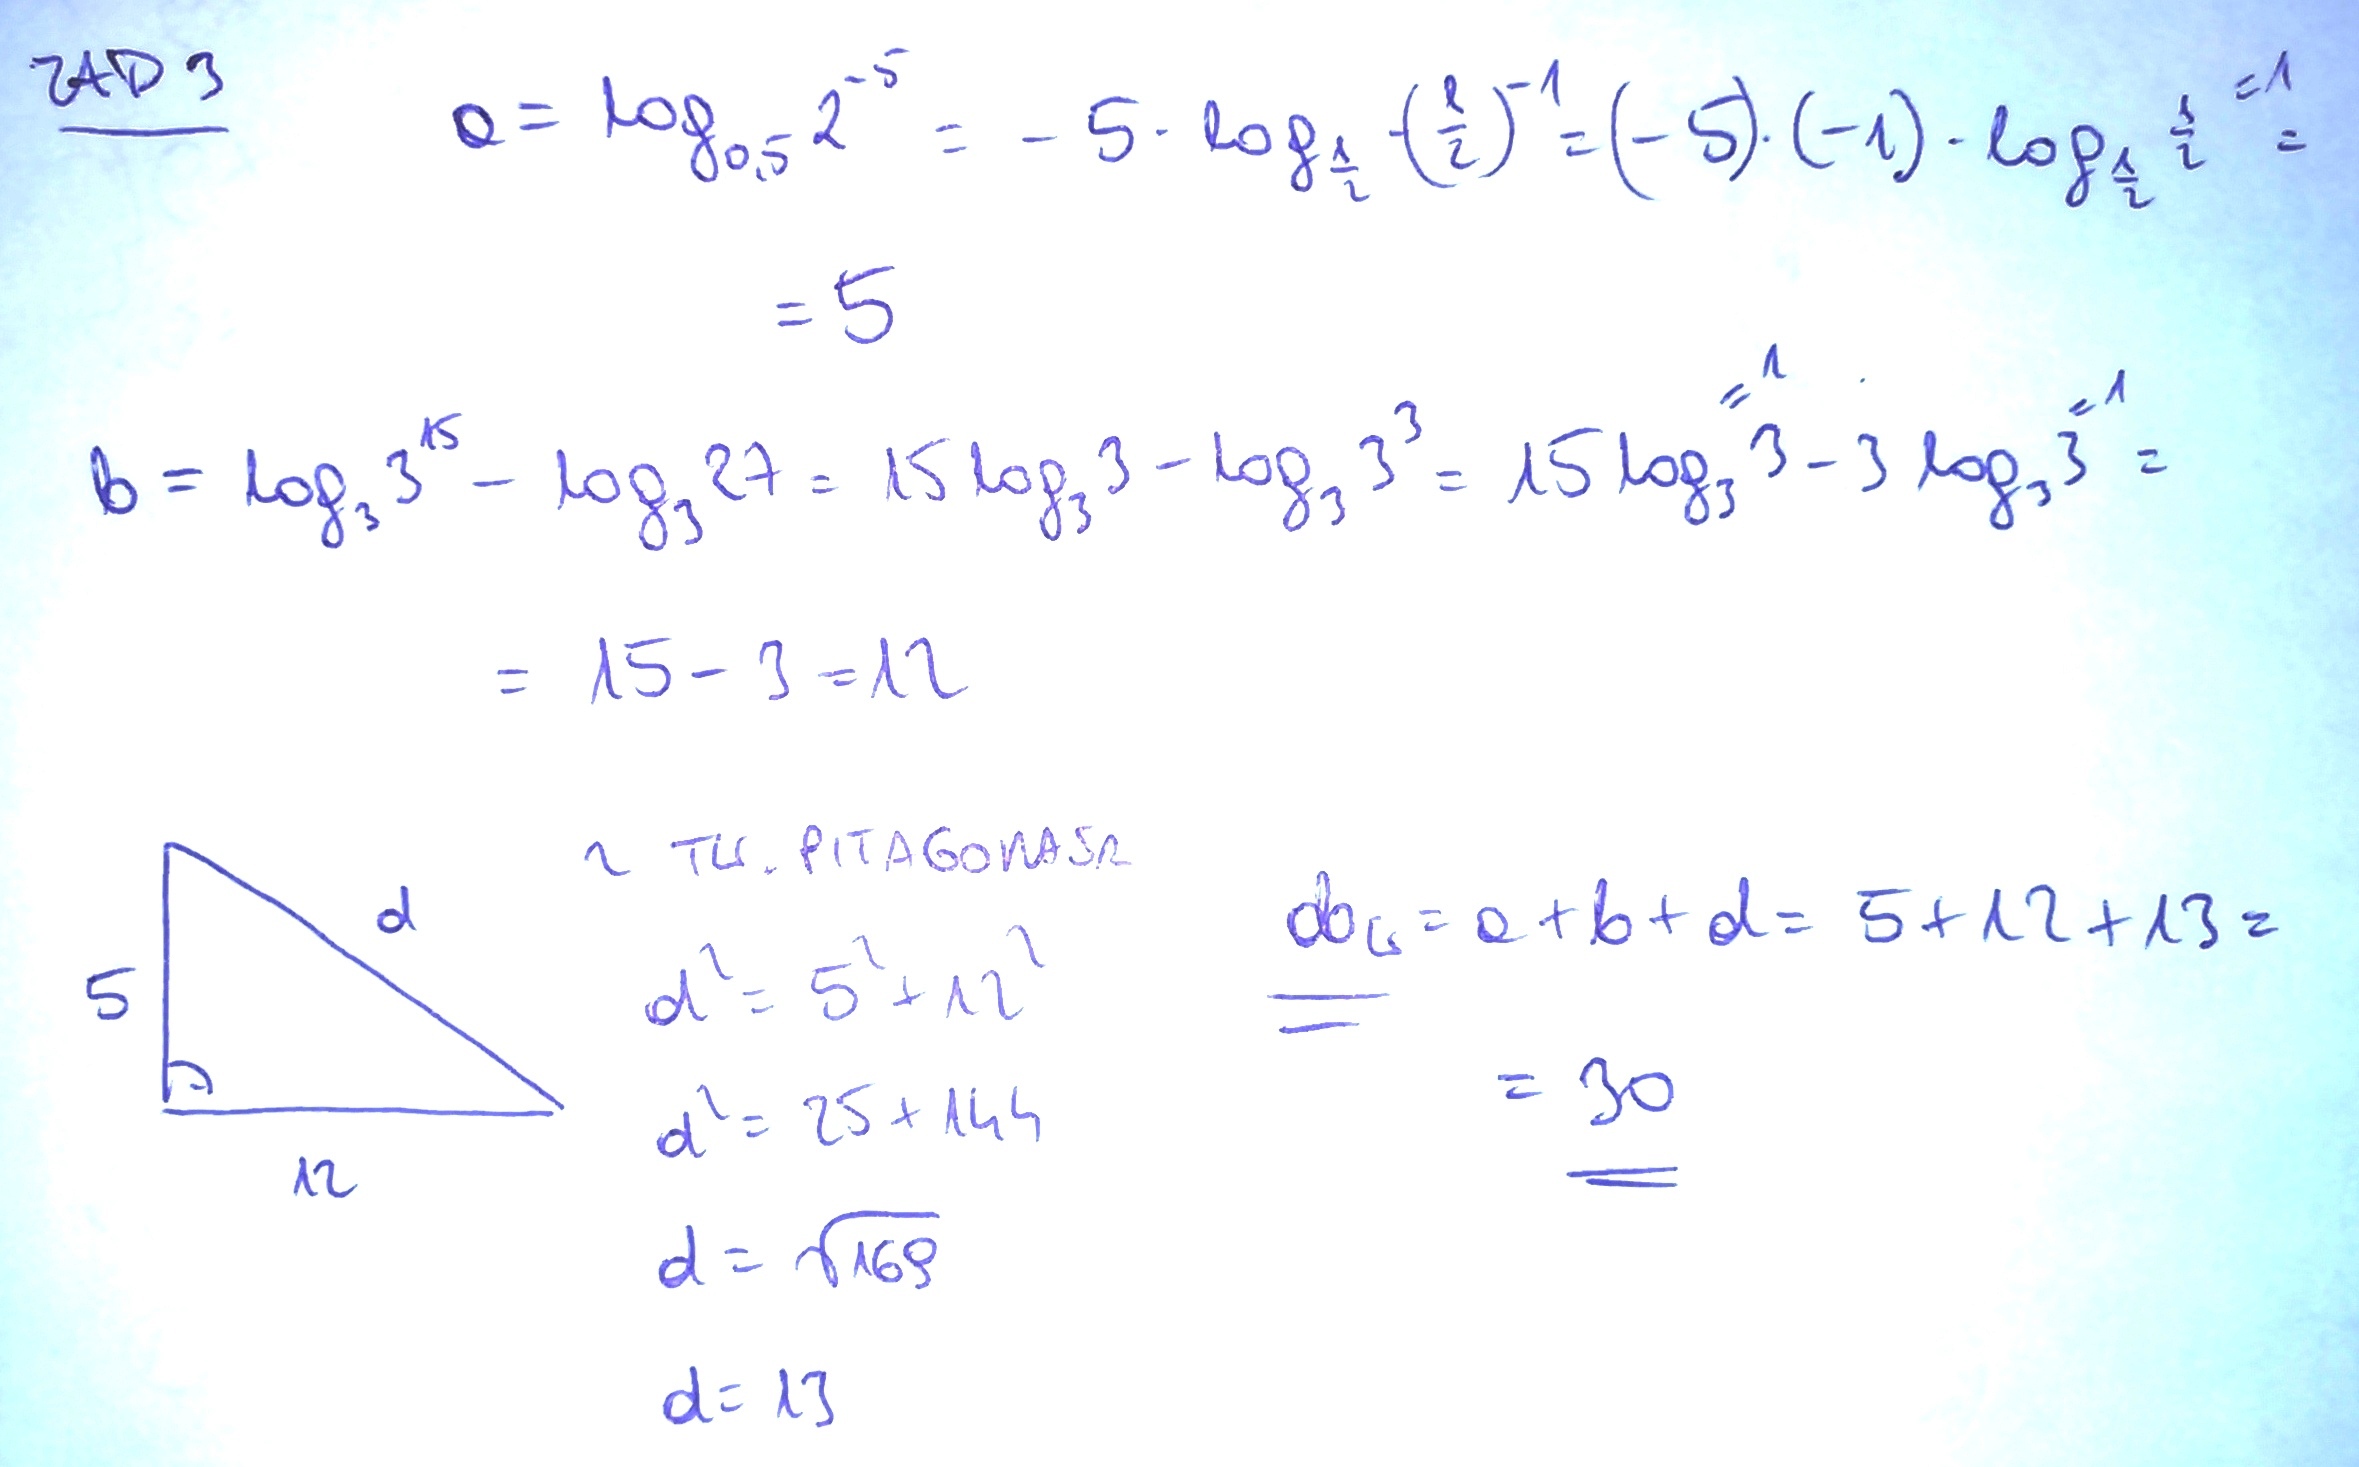 ZAD 3
a = log₀,₅ 2⁻⁵ = -5 · log_{1/2} (1/2)⁻¹ = (-5)·(-1)·log_{1/2} 1/2 ⁼¹ =
= 5
b = log₃ 3¹⁵ - log₃ 27 = 15 log₃ 3 - log₃ 3³ = 15 log₃ 3 ⁼¹ - 3 log₃ 3 ⁼¹ =
= 15 - 3 = 12
z TW. PITAGORASA
d
5
12
d² = 5² + 12²
d² = 25 + 144
d = √169
d = 13
= a + b + d = 5 + 12 + 13 =
= 30